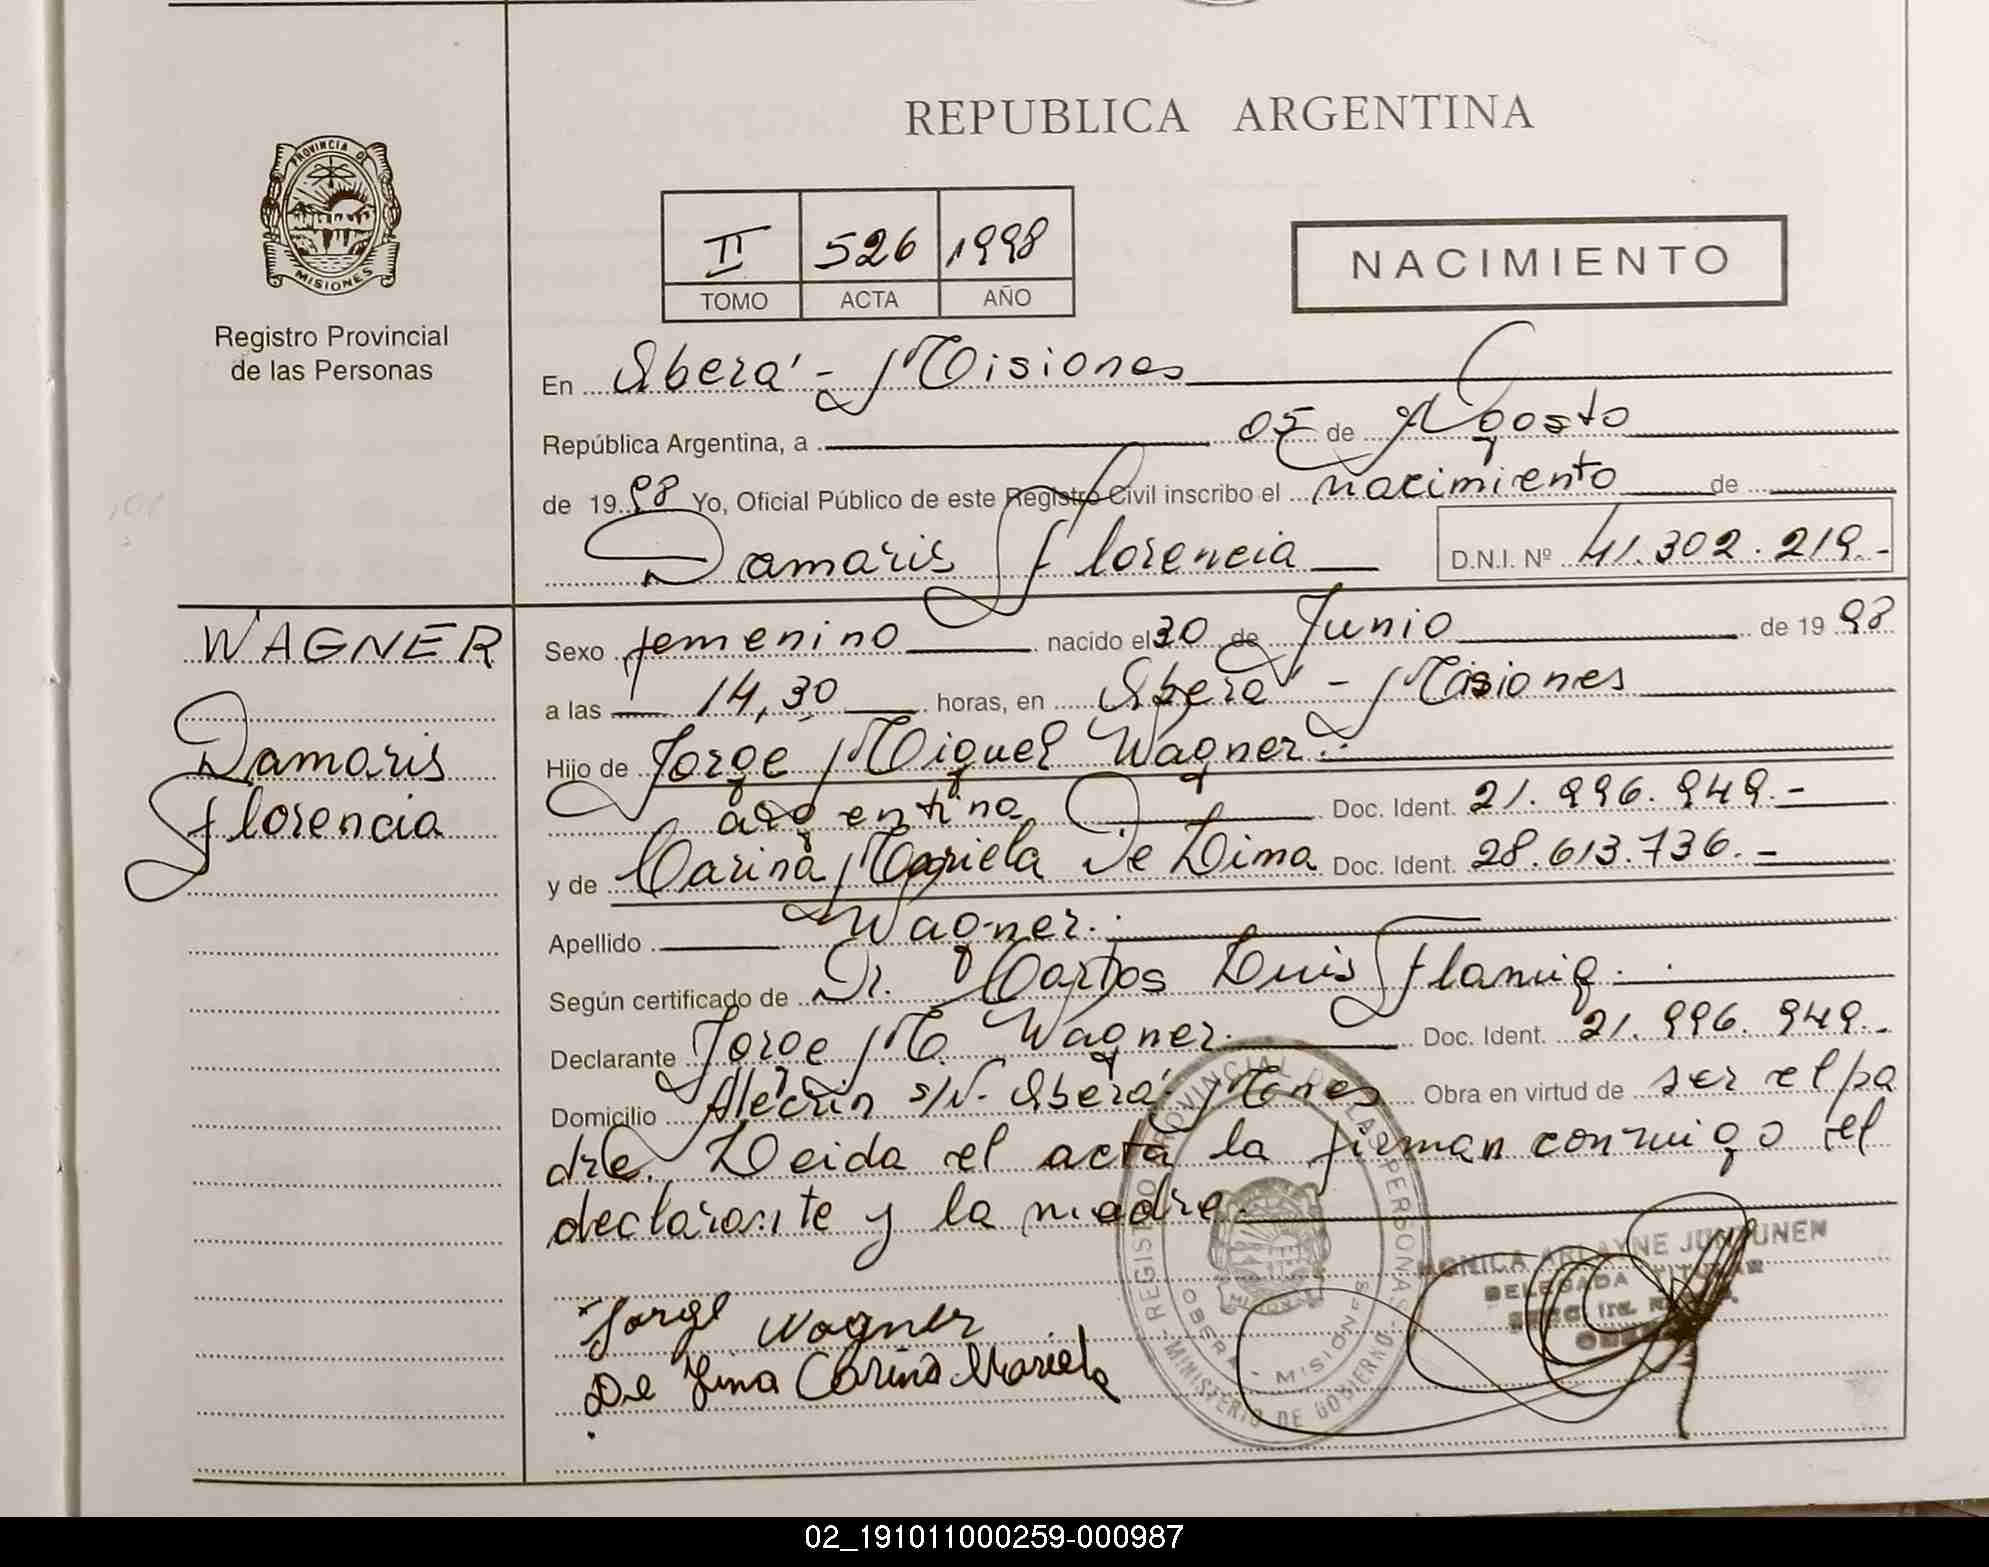 REPUBLICA ARGENTINA
PROVINCIA DE
MISIONES
Registro Provincial
de las Personas
II 526 1998
TOMO ACTA AÑO
NACIMIENTO
En Oberá - Misiones
República Argentina, a 05 de Agosto
de 1998 Yo, Oficial Público de este Registro Civil inscribo el nacimiento de
Damaris Florencia D.N.I. Nº 41.302.219.-
WAGNER
Damaris
Florencia
Sexo femenino nacido el 30 de Junio de 1998
a las 14,30 horas, en Oberá - Misiones
Hijo de Jorge Miguel Wagner.-
argentino Doc. Ident. 21.996.949.-
y de Carina Mariela De Lima Doc. Ident. 28.613.736.-
Apellido Wagner.
Según certificado de Dr. Carlos Luis Flamig.
Declarante Jorge M. Wagner. Doc. Ident. 21.996.949.-
Domicilio Alecrin s/N- Oberá Mnes Obra en virtud de ser el pa
dre. Leida el acta la firman conmigo el
declarante y la madre.
REGISTRO PROVINCIAL DE LAS PERSONAS
MINISTERIO DE GOBIERNO
OBERA - MISIONES
MONICA ARLAYNE
DELEGADA TITULAR
Jorge Wagner
De Lima Carina Mariela
02_191011000259-000987